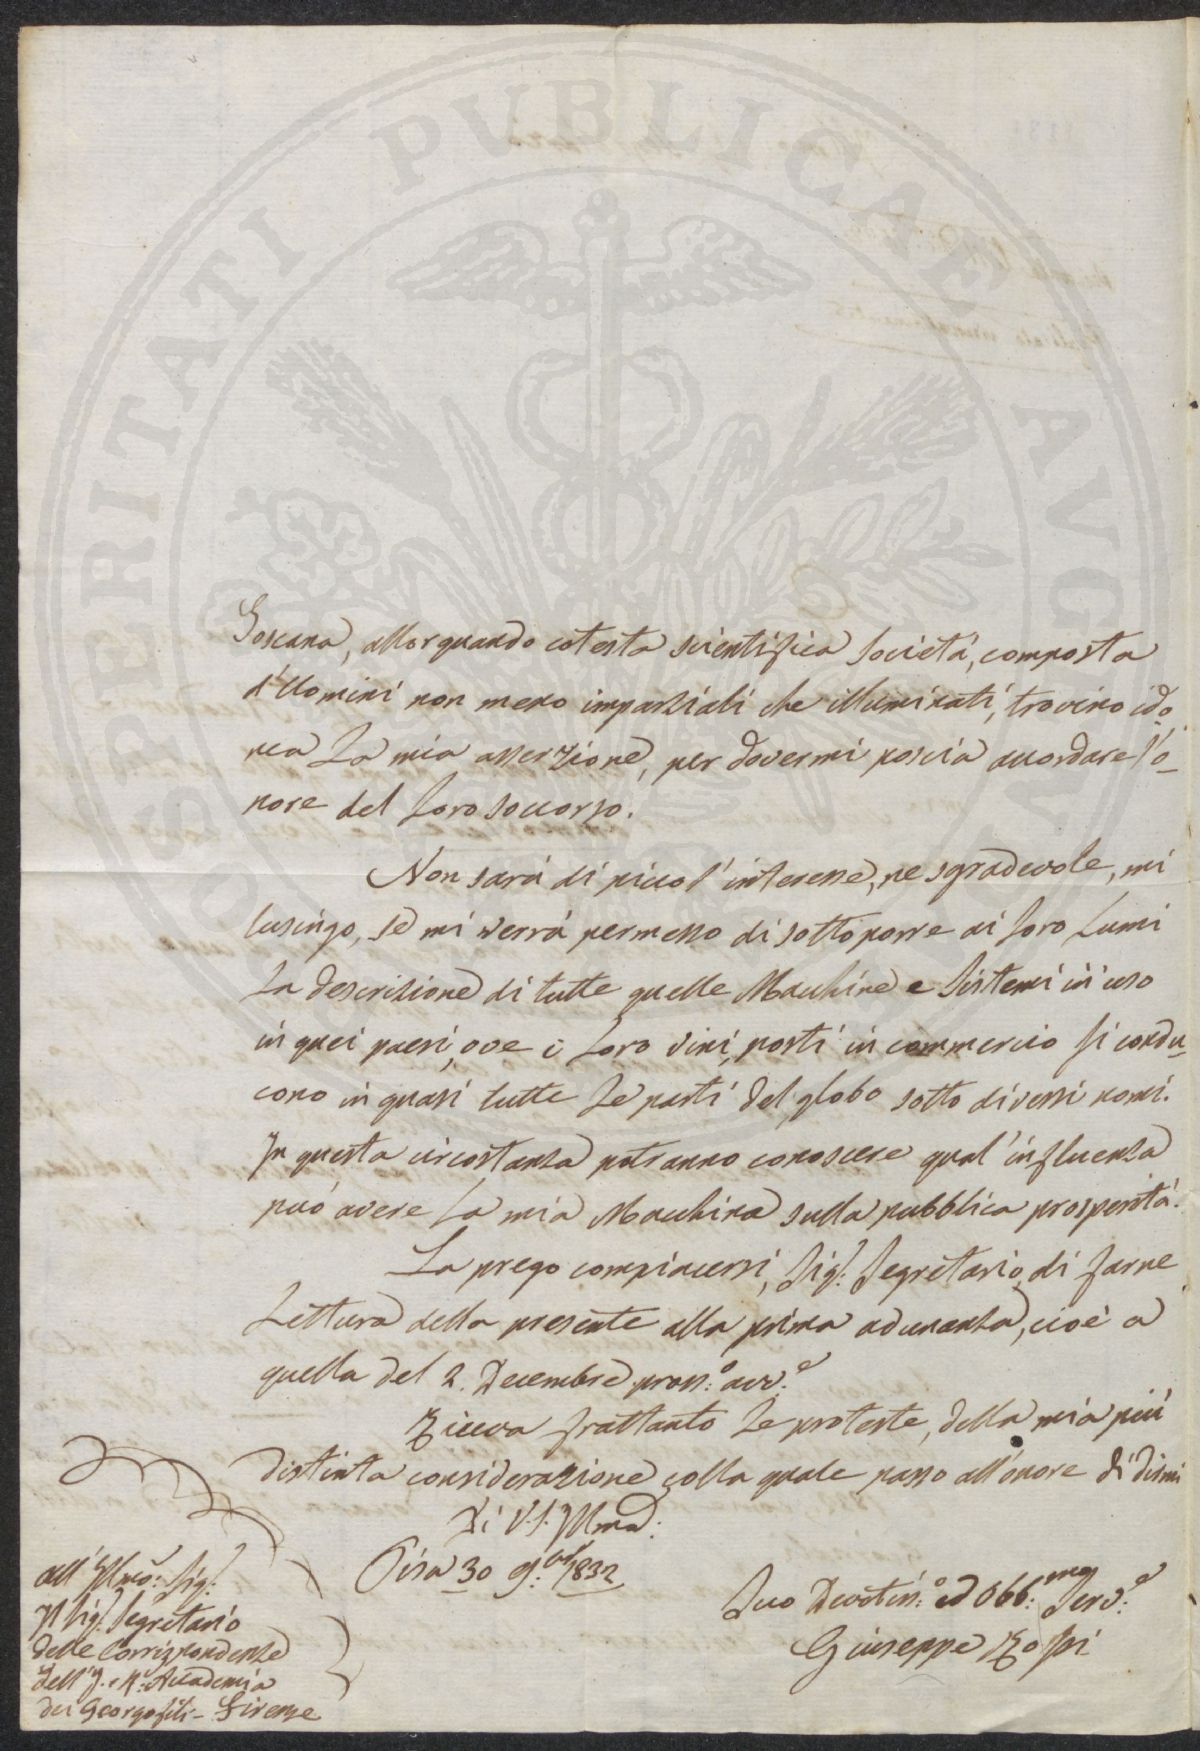 PROSPERITATI PUBLICAE AVGENDAE
Toscana, allorquando cotesta scientifica Società, composta
d'Uomini non meno imparziali che illuminati, trovino ido
nea La mia asserzione, per dovermi poscia accordare l'o_
nore del Loro soccorso.
Non sarà di piccol' interesse, ne sgradevole, mi
lusingo, se mi verrà permesso di sottoporre ai Loro Lumi
La descrizione di tutte quelle Macchine e Sistemi in uso
in quei paesi, ove i Loro vini, posti in commercio si condu_
cono in quasi tutte Le parti del globo sotto diversi nomi.
In questa circostanza potranno conoscere qual' influenza
può avere La mia Macchina sulla pubblica prosperità.
La prego compiacersi, Sig.r Segretario, di farne
Lettura della presente alla prima adunanza, cioè a
quella del 2. Decembre pross:o avv:e
Riceva frattanto Le proteste, della mia più
distinta considerazione colla quale passo all'onore di dirmi
Di V.S. Illma:
Pisa 30 9:bre 1832
Suo Devotiss:o ed Obb:mo Serv:e
Giuseppe Rossi
all' Illmo: Sig.r
Il Sig.r Segretario
delle Corrispondenze
dell' I. e R. Accademia
dei Georgofili - Firenze